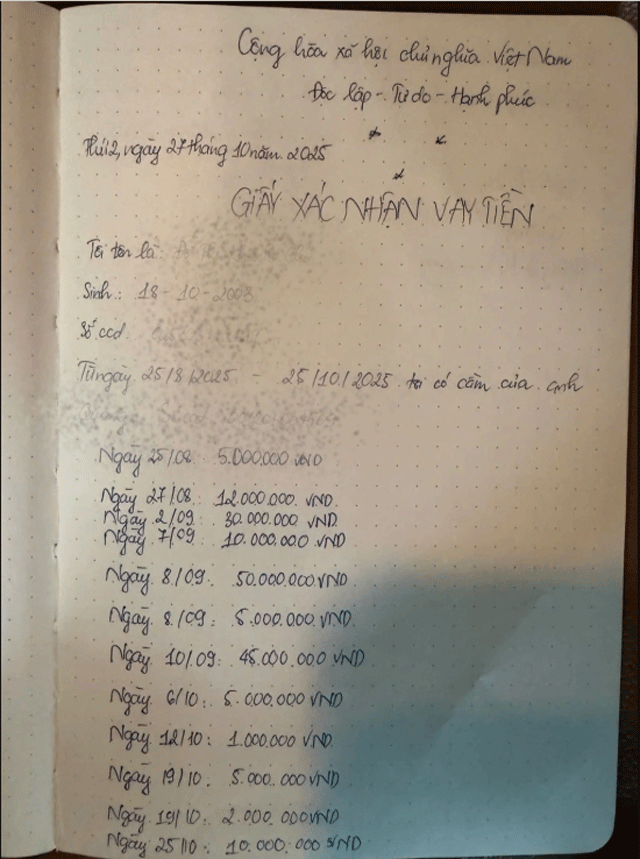 Cộng hòa xã hội chủ nghĩa Việt Nam
Độc lập - Tự do - Hạnh phúc
Thứ 2, ngày 27 tháng 10 năm 2025
GIẤY XÁC NHẬN VAY TIỀN
Tôi tên là:
Sinh: 18-10-2003
Số cccd
Từ ngày 25/8/2025 - 25/10/2025 tôi có cầm của anh
Ngày 25/08: 5.000.000 VND
Ngày 27/08: 12.000.000 VND
Ngày 2/09: 30.000.000 VND
Ngày 7/09: 10.000.000 VND
Ngày 8/09: 50.000.000 VND
Ngày 8/09: 5.000.000 VND
Ngày 10/09: 45.000.000 VND
Ngày 6/10: 5.000.000 VND
Ngày 12/10: 1.000.000 VND
Ngày 19/10: 5.000.000 VND
Ngày 19/10: 2.000.000 VND
Ngày 25/10: 10.000.000 VND